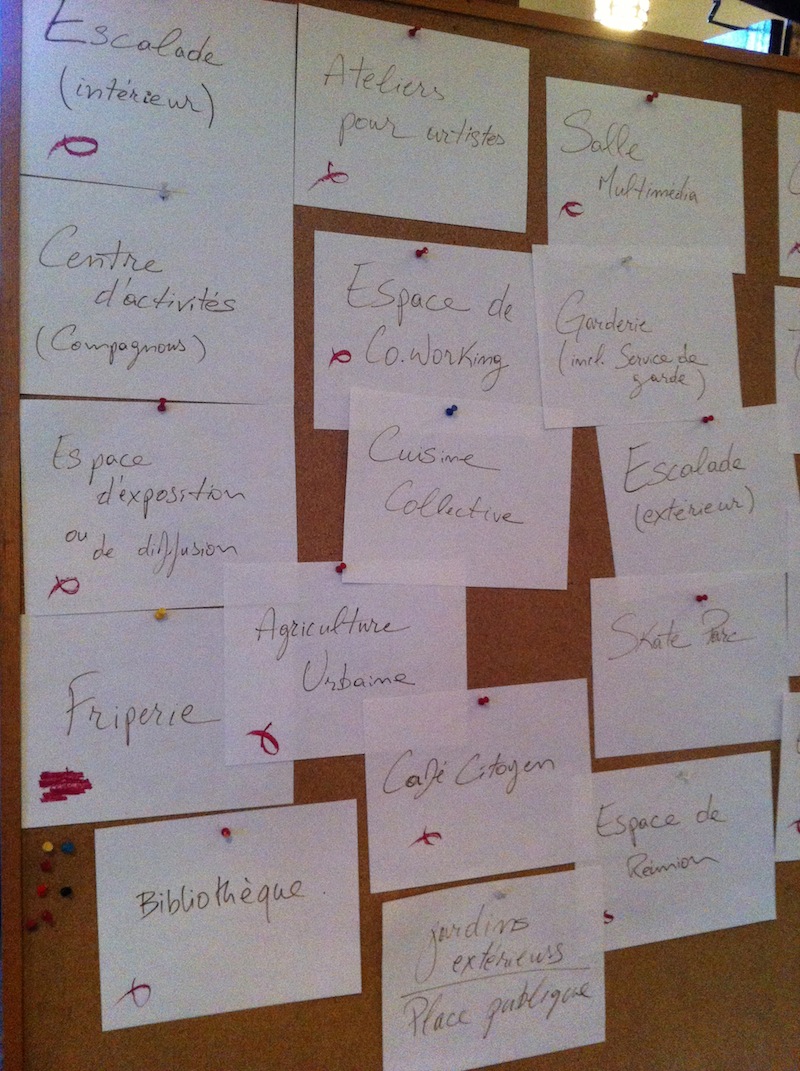 Escalade
(intérieur)
Ateliers
pour artistes
Salle
Multimédia
Centre
d'activités
(Compagnons)
Espace de
Co.Working
Garderie
(incl. Service de
garde)
Espace
d'exposition
ou de diffusion
Cuisine
Collective
Escalade
(extérieur)
Friperie
Agriculture
Urbaine
Skate Parc
Café Citoyen
Espace de
Réunion
Bibliothèque.
jardins
extérieurs
Place publique